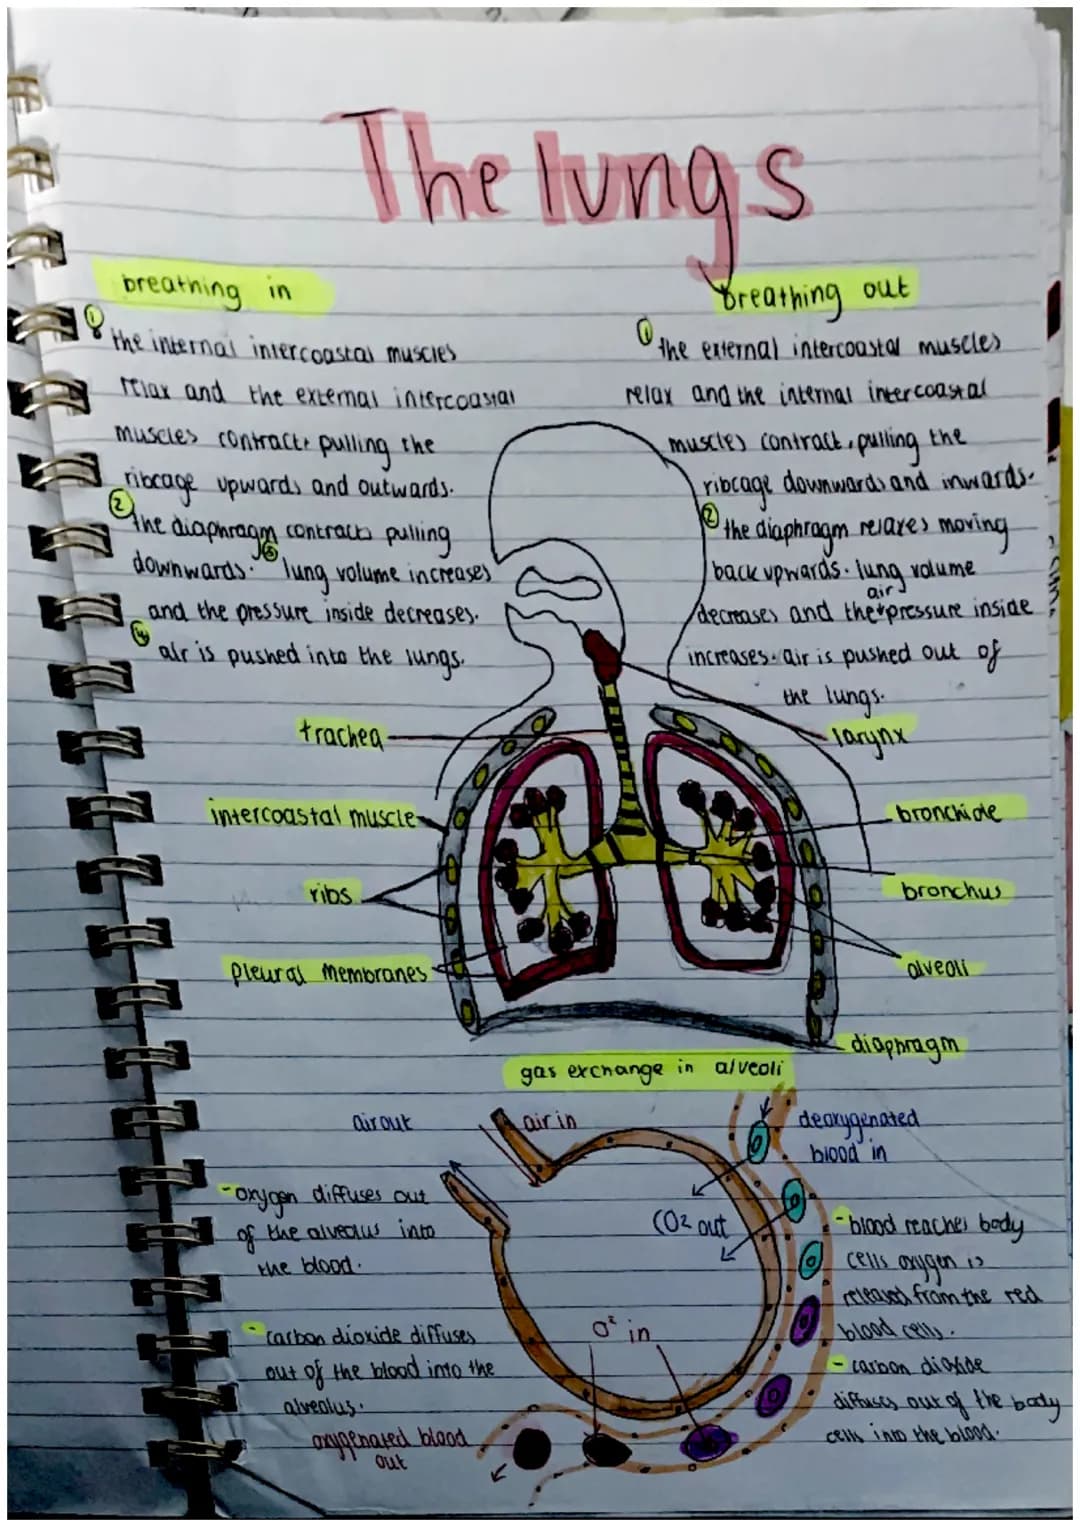 The lungs
breathing in
① the internal intercoastal muscles
relax and the external intercoastal
muscles contract, pulling the
ribcage upwards and outwards.
② the diaphragm contracts pulling
downwards. ③ lung volume increases
and the pressure inside decreases.
④ air is pushed into the lungs.
breathing out
① the external intercoastal muscles
relax and the internal intercoastal
muscles contract, pulling the
ribcage downwards and inwards.
② the diaphragm relaxes moving
back upwards. lung volume
air
decreases and the pressure inside
increases. air is pushed out of
the lungs.
trachea
larynx
intercoastal muscle
bronchiole
ribs
bronchus
pleural membranes
alveoli
diaphragm
gas exchange in alveoli
air out
air in
deoxygenated
blood in
- oxygen diffuses out
of the alveolus into
the blood.
CO2 out
- blood reaches body
cells oxygen is
released from the red
blood cells.
O² in
- carbon dioxide diffuses
out of the blood into the
alveolus.
- carbon dioxide
diffuses out of the body
cells into the blood.
oxygenated blood
out